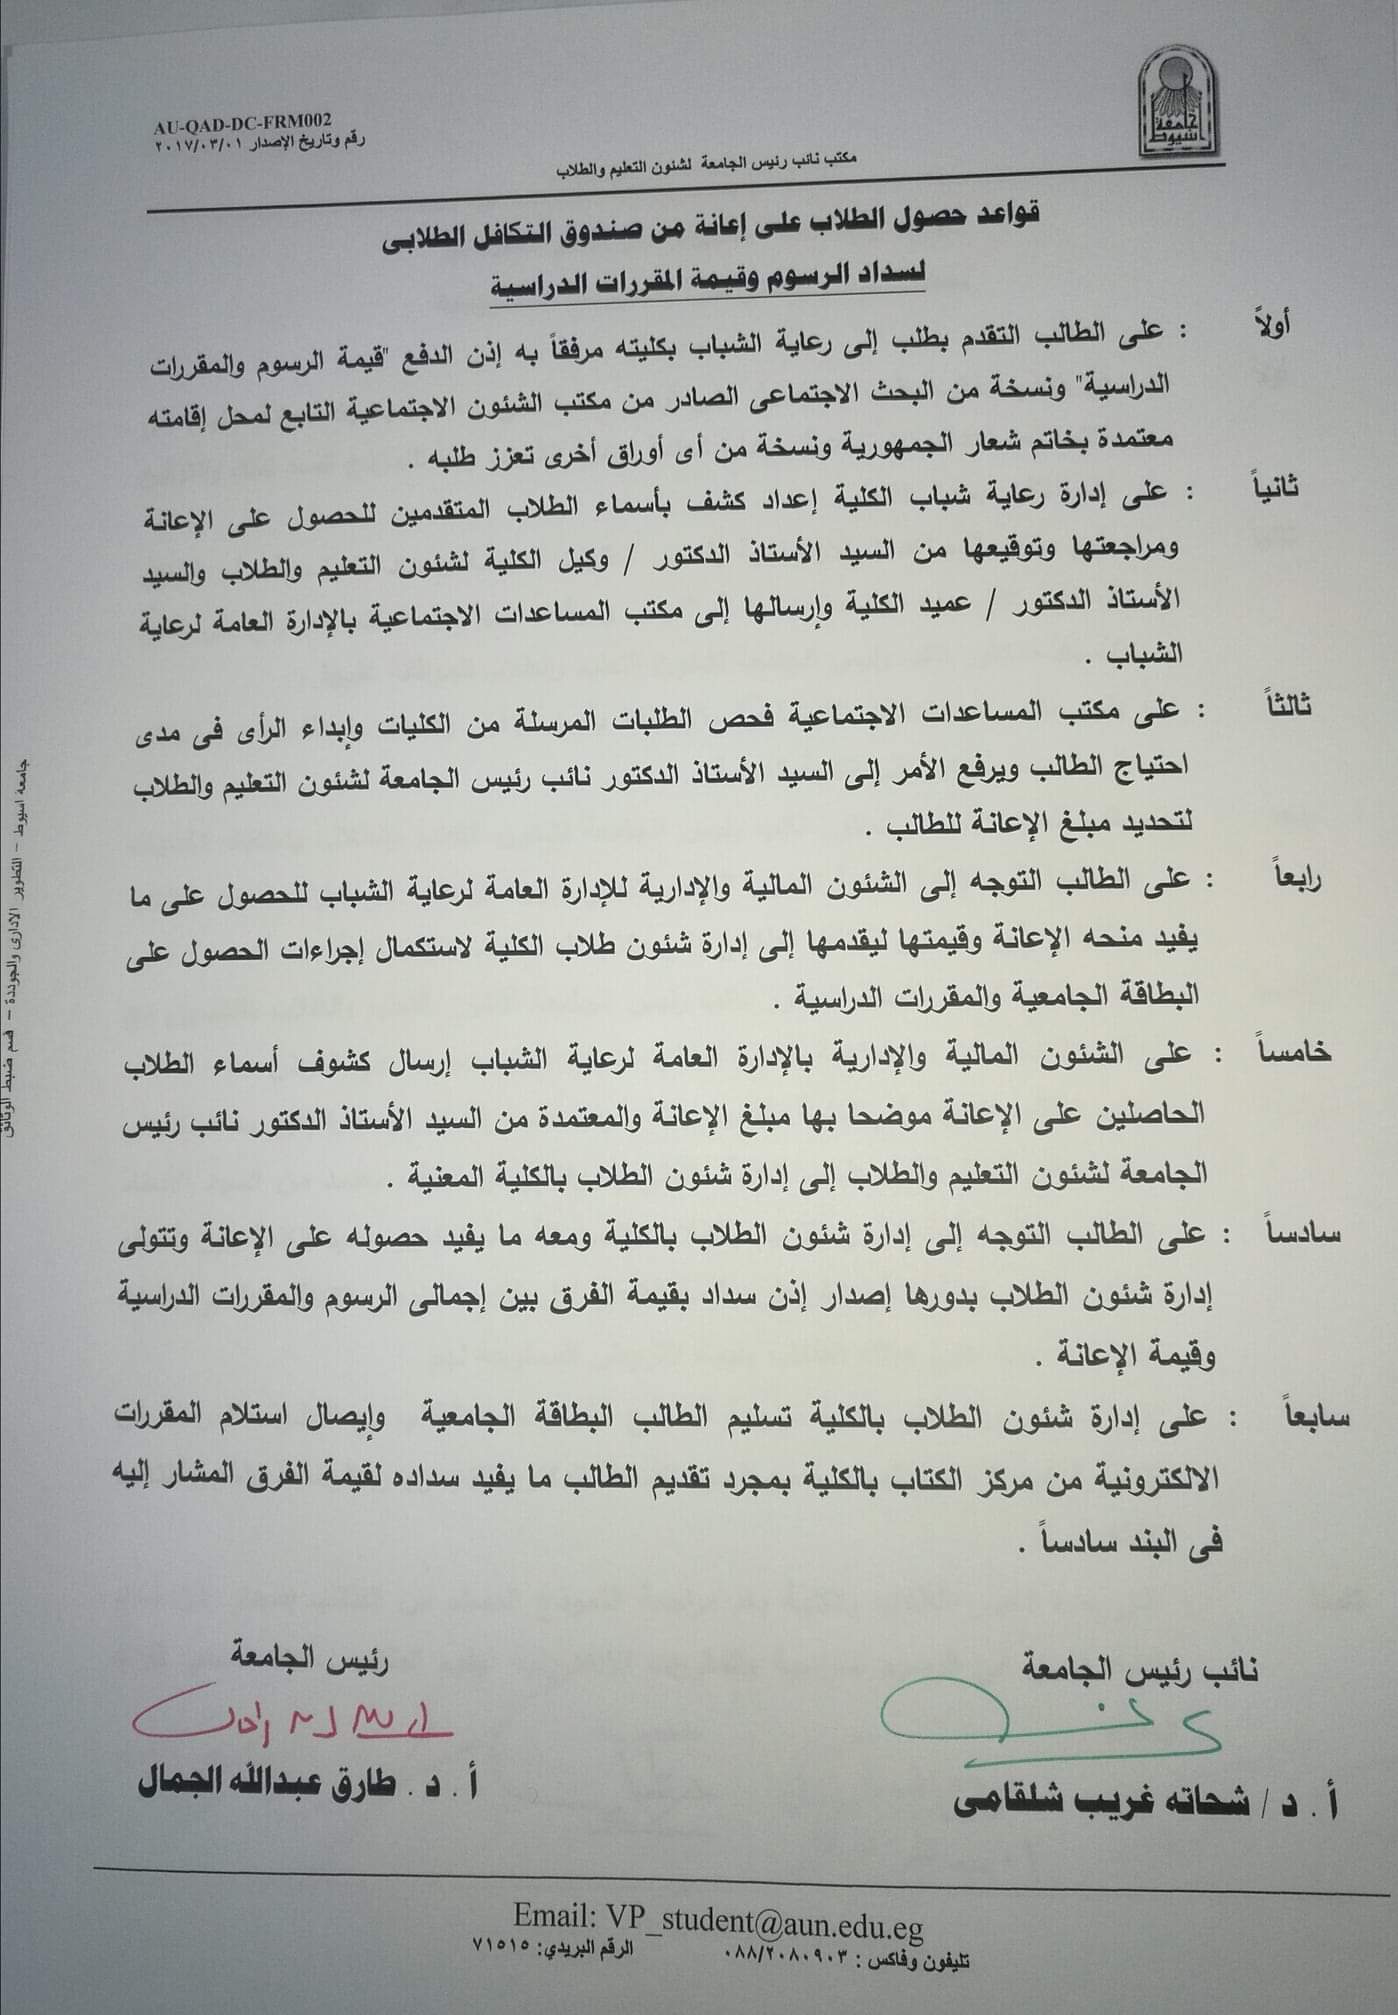 جامعة
أسيوط
AU-QAD-DC-FRM002
رقم وتاريخ الإصدار ٢٠١٧/٠٣/٠١
مكتب نائب رئيس الجامعة لشئون التعليم والطلاب
قواعد حصول الطلاب على إعانة من صندوق التكافل الطلابى
لسداد الرسوم وقيمة المقررات الدراسية
أولاً : على الطالب التقدم بطلب إلى رعاية الشباب بكليته مرفقاً به إذن الدفع "قيمة الرسوم والمقررات
الدراسية" ونسخة من البحث الاجتماعى الصادر من مكتب الشئون الاجتماعية التابع لمحل إقامته
معتمدة بخاتم شعار الجمهورية ونسخة من أى أوراق أخرى تعزز طلبه .
ثانياً : على إدارة رعاية شباب الكلية إعداد كشف بأسماء الطلاب المتقدمين للحصول على الإعانة
ومراجعتها وتوقيعها من السيد الأستاذ الدكتور / وكيل الكلية لشئون التعليم والطلاب والسيد
الأستاذ الدكتور / عميد الكلية وإرسالها إلى مكتب المساعدات الاجتماعية بالإدارة العامة لرعاية
الشباب .
ثالثاً : على مكتب المساعدات الاجتماعية فحص الطلبات المرسلة من الكليات وإبداء الرأى فى مدى
احتياج الطالب ويرفع الأمر إلى السيد الأستاذ الدكتور نائب رئيس الجامعة لشئون التعليم والطلاب
لتحديد مبلغ الإعانة للطالب .
رابعاً : على الطالب التوجه إلى الشئون المالية والإدارية للإدارة العامة لرعاية الشباب للحصول على ما
يفيد منحه الإعانة وقيمتها ليقدمها إلى إدارة شئون طلاب الكلية لاستكمال إجراءات الحصول على
البطاقة الجامعية والمقررات الدراسية .
خامساً : على الشئون المالية والإدارية بالإدارة العامة لرعاية الشباب إرسال كشوف أسماء الطلاب
الحاصلين على الإعانة موضحا بها مبلغ الإعانة والمعتمدة من السيد الأستاذ الدكتور نائب رئيس
الجامعة لشئون التعليم والطلاب إلى إدارة شئون الطلاب بالكلية المعنية .
سادساً : على الطالب التوجه إلى إدارة شئون الطلاب بالكلية ومعه ما يفيد حصوله على الإعانة وتتولى
إدارة شئون الطلاب بدورها إصدار إذن سداد بقيمة الفرق بين إجمالى الرسوم والمقررات الدراسية
وقيمة الإعانة .
سابعاً : على إدارة شئون الطلاب بالكلية تسليم الطالب البطاقة الجامعية وإيصال استلام المقررات
الالكترونية من مركز الكتاب بالكلية بمجرد تقديم الطالب ما يفيد سداده لقيمة الفرق المشار إليه
فى البند سادساً .
نائب رئيس الجامعة
أ . د / شحاته غريب شلقامى
رئيس الجامعة
أ . د . طارق عبدالله الجمال
Email: VP_student@aun.edu.eg
تليفون وفاكس : ٠٨٨/٢٠٨٠٩٠٣ الرقم البريدي: ٧١٥١٥
جامعة اسيوط – التطوير الادارى والجوددة – قسم ضبط الوثائق